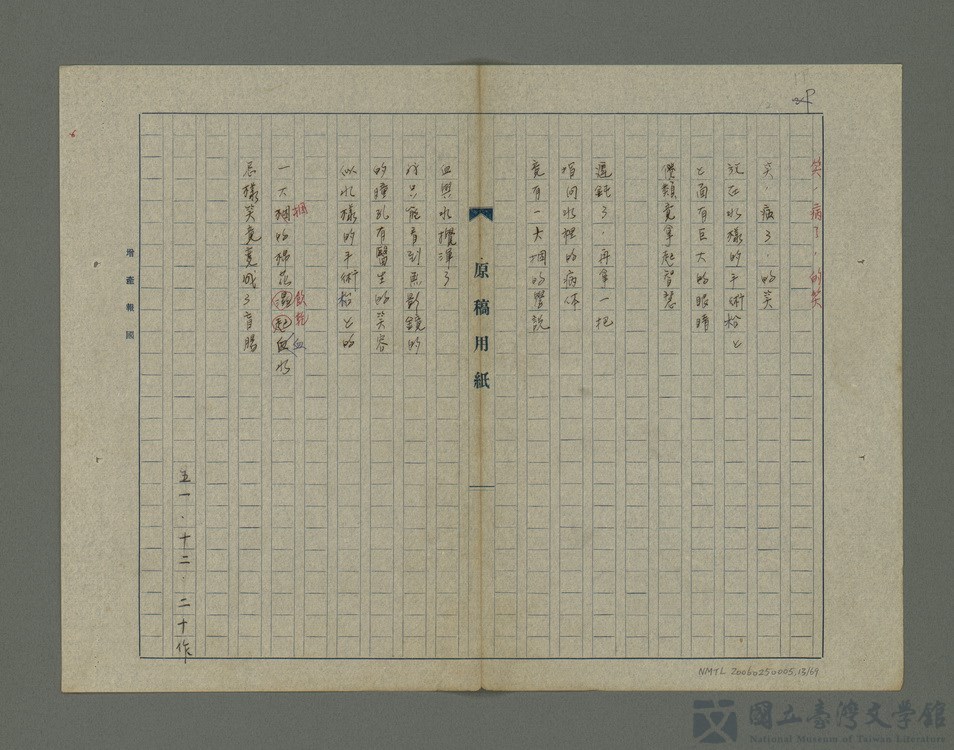 笑，病了，的笑
笑，病了，的笑
放在水樣的手術枱上
上面有巨大的眼睛
儍類竟拿起智慧
遲鈍了，再拿一把
指向水裡的病体
竟有一大堆的學說
血與水攪渾了
祇能看到
的瞳孔有醫生的笑容
似水樣的手術枱上的
一大捆的棉花濕起血水
捆
飲乾血
怎樣笑竟竟成了盲腸
五一．十二．二十作
原稿用紙
增產報國
NMTL 20060250005.13/69
國立臺灣文學館
National Museum of Taiwan Literature